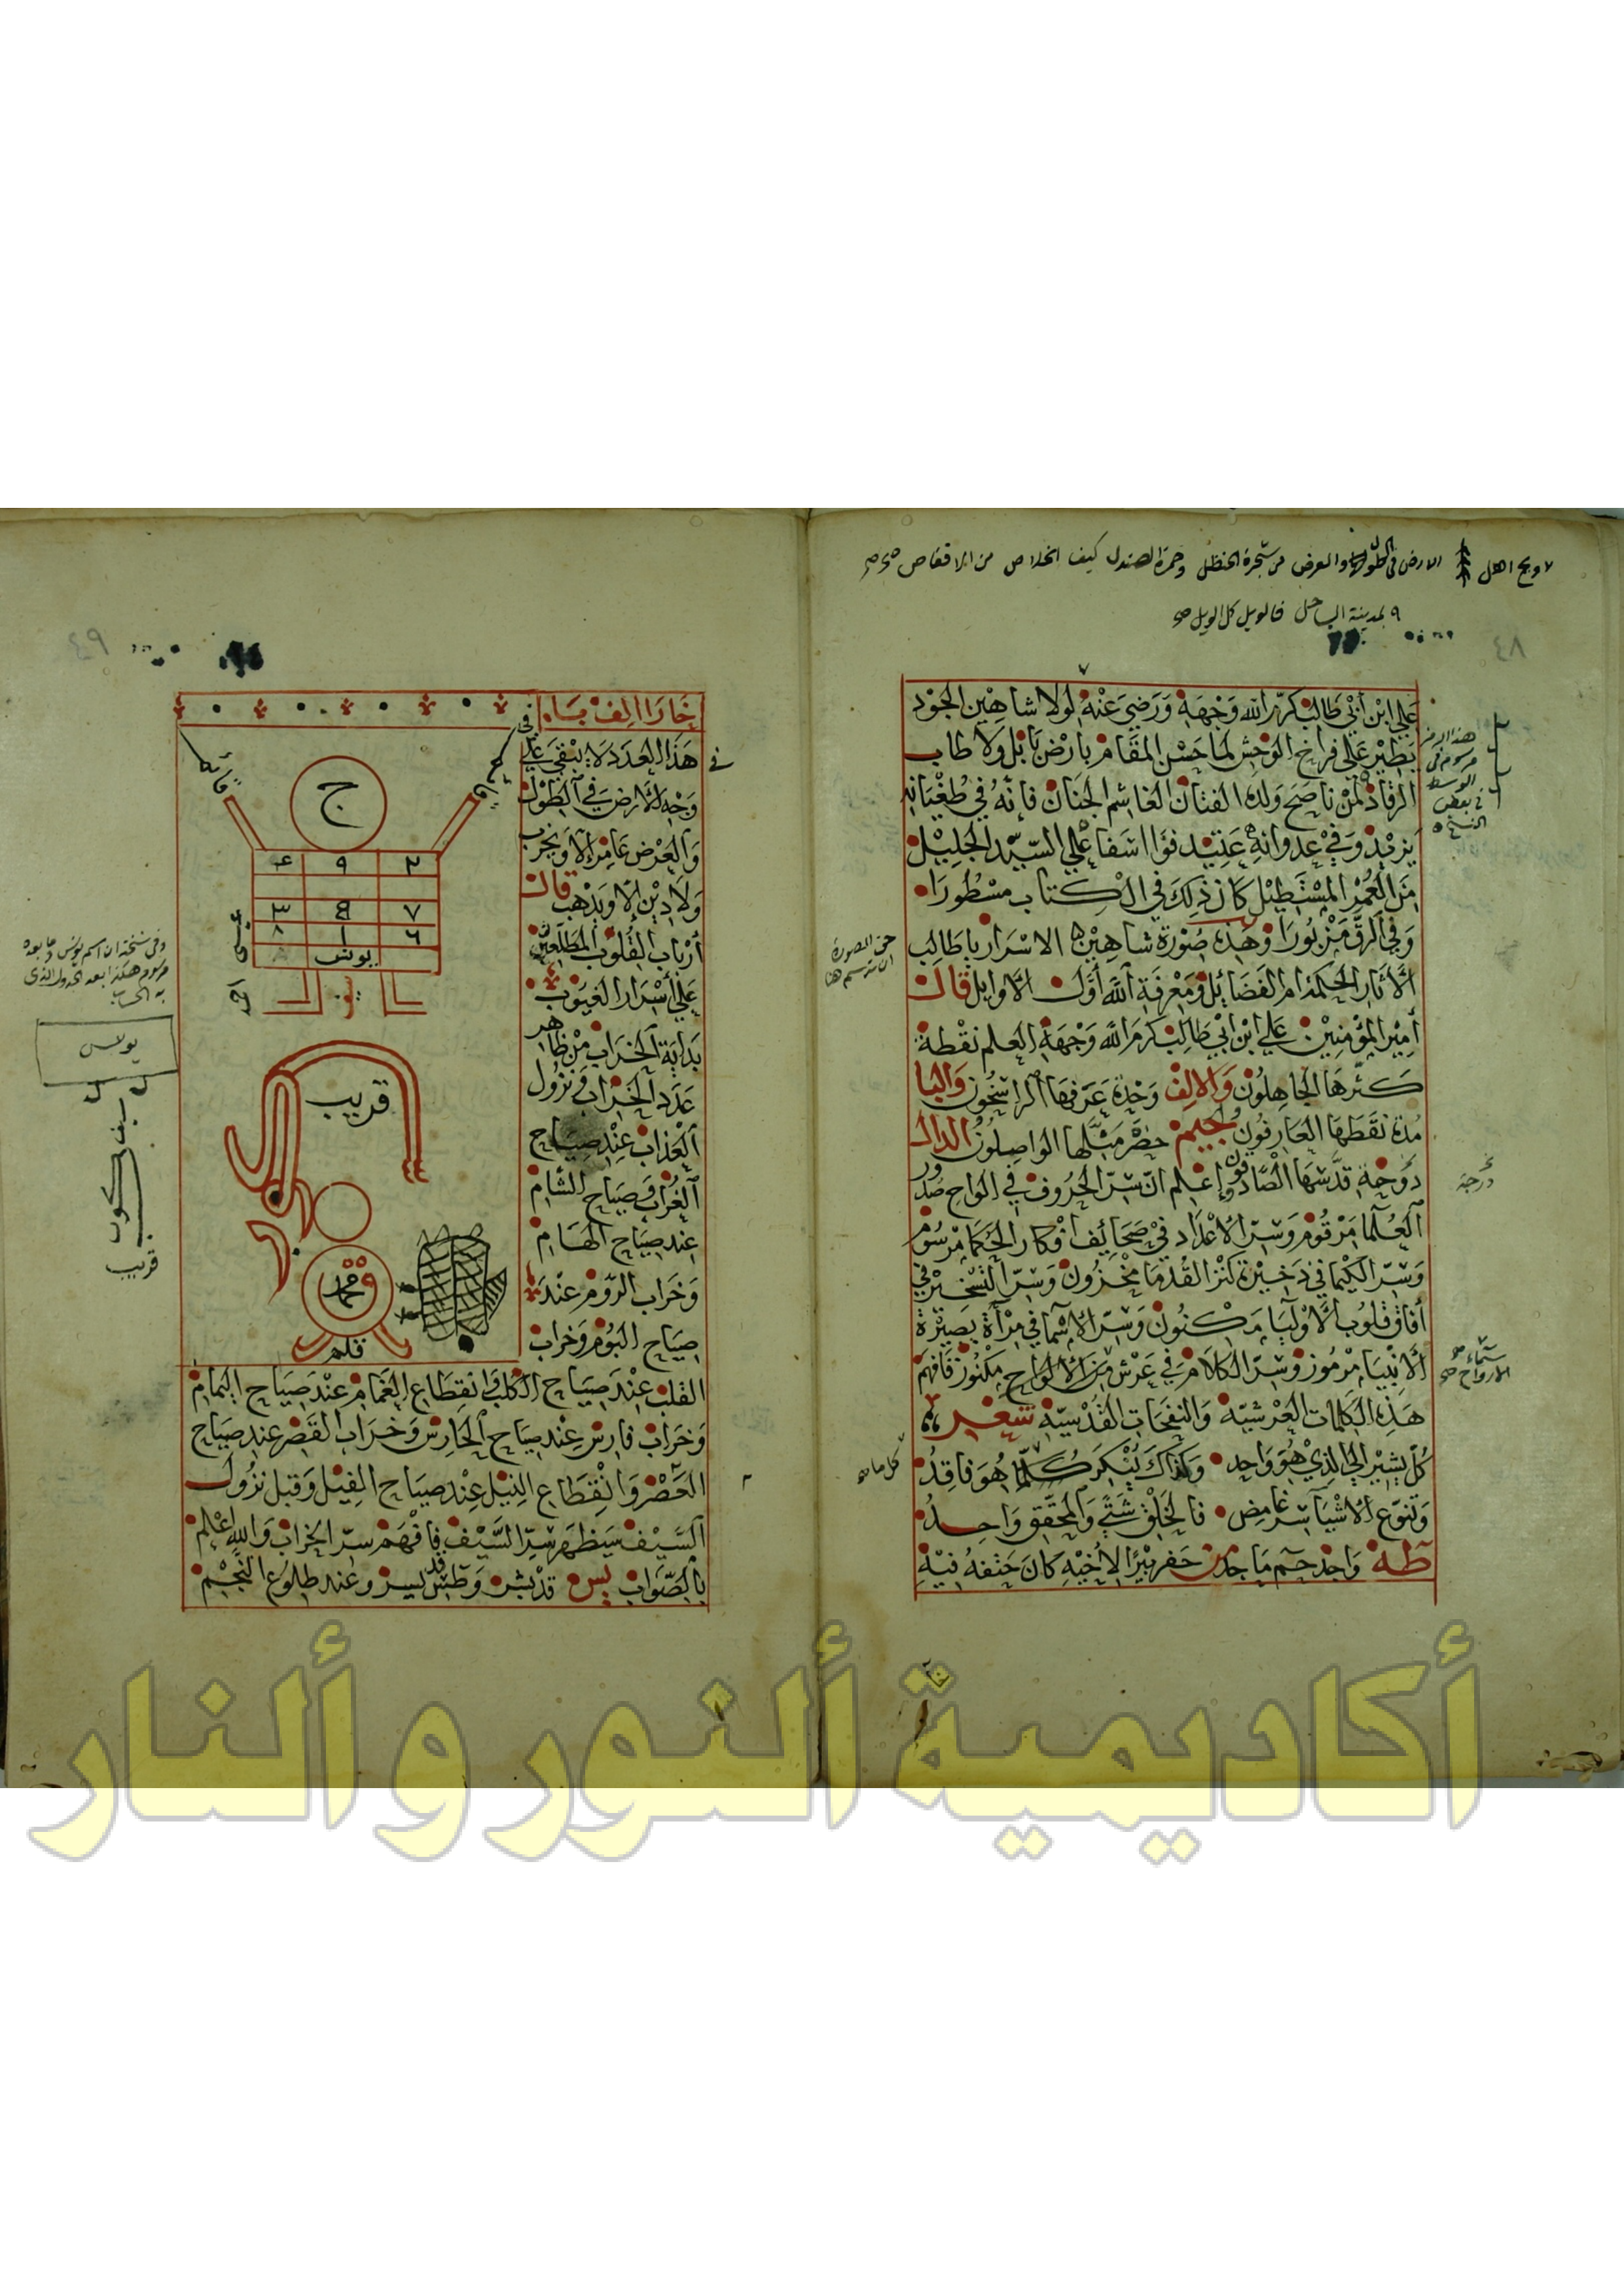 ٧ ويح اهل الارض في الطول والعرض من شجرة الحنظل وحمرة الصندل كيف الخلاص من الاقفاص صح
٩ لمدينة الساحل فالويل كل الويل صح
٤٨
علي ابن أبي طالب كرم الله وجهه ورضي عنه لولا شاهين الجود
يطير على فراخ الوحش لما حسن المقام بارض بابل ولا طاب
الرقاد لمن ناصح ولده الفتان الغاشم الجنان فانه في طغيانه
يزيد وفي عدوانه عتيد فوا اسفا على السيد الجليل
من العمر المستطيل كان ذلك في الكتاب مسطورا
وفي الرق مزبورا وهذه صورة شاهين الاسرار يا طالب
الاثار الحكمة ام الفضائل ومعرفة الله أول الاوايل قال
أمير المؤمنين علي ابن ابي طالب كرم الله وجهه العلم نقطة
كثرها الجاهلون والالف وحدة عرفها الراسخون والبا
مدة نقطها العارفون والجيم حضرة مثلها الواصلون الدال
دوحة قدسها الصادقون وإعلم ان سر الحروف في الواح صدور
العلما مرقوم وسر الاعداد في صحائف افكار الحكما مرسوم
وسر الكيميا في ذخيرة كنز القدما مخزون وسر التسخير في
أفاق قلوب الاوليا مكنون وسر الاسما في مرآة بصيرة
الانبيا مرموز وسر الكلام في عرش الالواح مكنوز فافهم
هذه الكلمات العرشية والنفحات القدسية شعر
كل يشير الى الذي هو واحد وكذاك ينكر كلما هو فاقد
وتنوع الاشيا سر غامض فالخلق شتى والمحقق واحد
طه واحد حم ماجد من حفر بيرا لاخيه كان حتفه فيه
هذا الرمز
مرسوم في
الوسط
في بعض
النسخ
حق الصورة
ان ترسم هنا
درجة
الارواح صح
٤٩
خارا الف با
في
هذا العدد لا يبقى على
وجه الارض في الطول
والعرض عامر الا ويخرب
ولا دين الا ويذهب قال
أرباب القلوب المطلعين
على أسرار الغيوب
بداية الخراب من ظاهر
عدد الخراب ونزول
العذاب عند صياح
الغراب وصياح الشام
عند صياح الهام
وخراب الروم عند
صياح البوم وخراب
القلب عند صياح الكلب وانقطاع الغمام عند صياح اليمام
وخراب فارس عند صياح الحارس وخراب القصر عند صياح
العصر وانقطاع النيل عند صياح الفيل وقبل نزول
السيف سيظهر سر السيف فافهم سر الخراب والله اعلم
بالصواب يس قد بشر وطس قد يسر وعند طلوع النجم
ج
٤ ٩ ٢
٣ ٧
٨ ١ ٦
يونس
عيسى
احمد
قريب
محمد
قلم
وفي نسخة ان اسم يونس وما بعده
مرسوم هكذا بعد الجدول الذي
به الحساب
يونس
قريب
أكاديمية ألنور وألنار